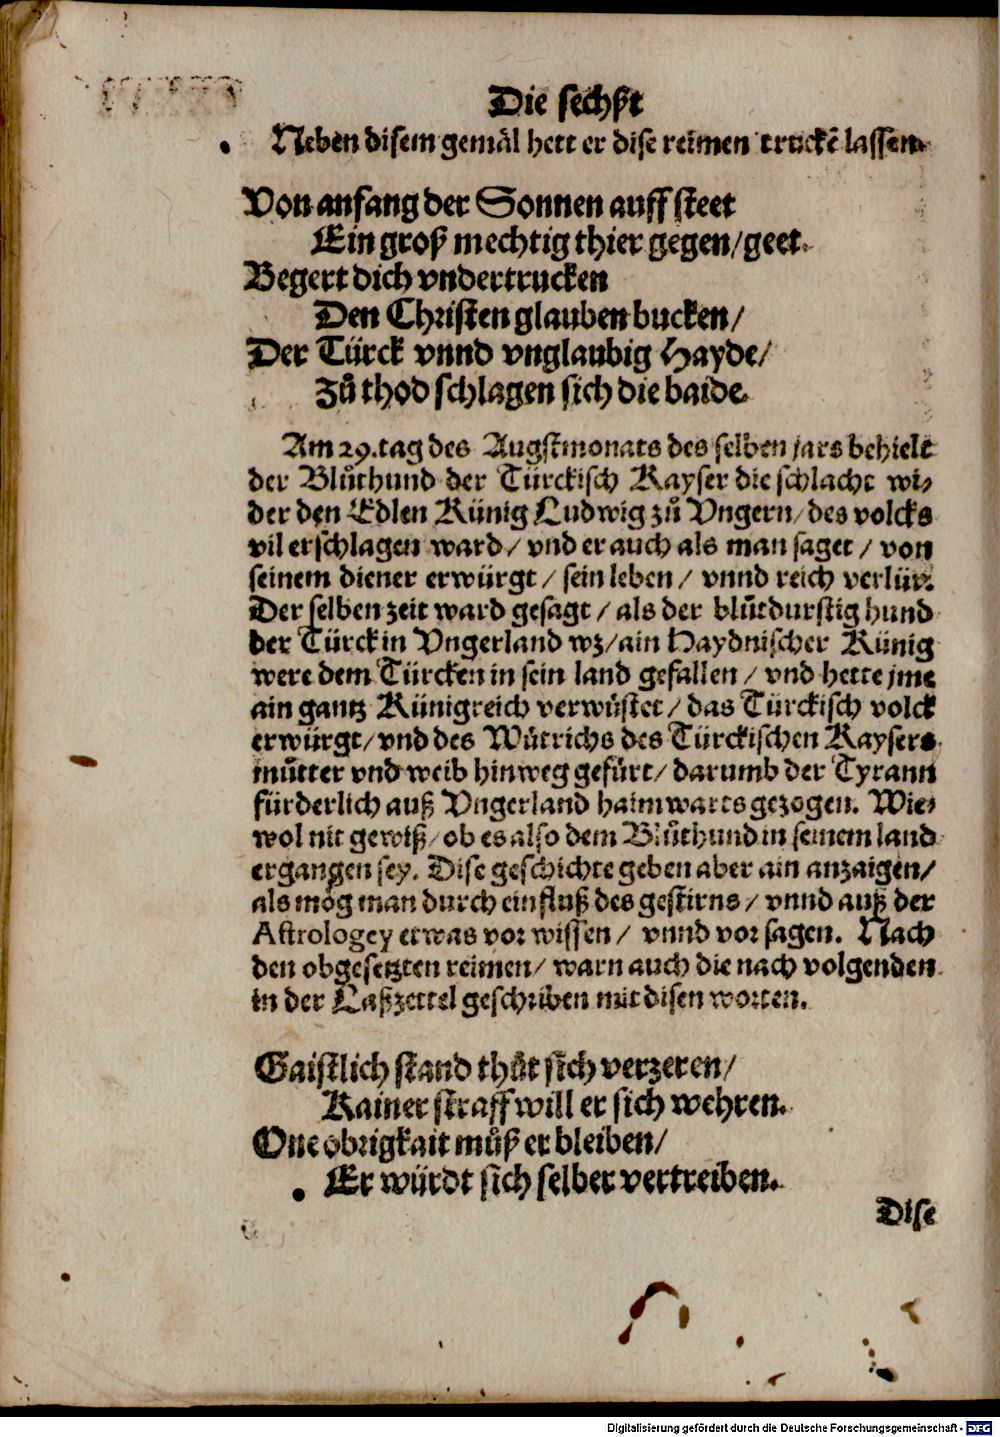 Die sechßt
Neben disem gemäl hett er dise reimen truckē lassen.
Von anfang der Sonnen auff steet
Ein groß mechtig thier gegen/geet.
Begert dich vndertrucken
Den Christen glauben bucken/
Der Türck vnnd vnglaubig Hayde/
Zů thod schlagen sich die baide.
Am 29. tag des Augstmonats des selben jars behielt
der Blůthund der Türckisch Kayser die schlacht wi⸗
der den Edlen Künig Ludwig zů Vngern/des volcks
vil erschlagen ward/ vnd er auch als man saget/ von
seinem diener erwürgt/ sein leben/ vnnd reich verlür.
Der selben zeit ward gesagt/ als der blůtdurstig hund
der Türck in Vngerland wz/ain Haydnischer Künig
were dem Türcken in sein land gefallen/ vnd hette jme
ain gantz Künigreich verwüstet/ das Türckisch volck
erwürgt/vnd des Wütrichs des Türckischen Kaysers
můtter vnd weib hinweg gefürt/ darumb der Tyrann
fürderlich auß Vngerland haimwarts gezogen. Wie⸗
wol nit gewiß/ob es also dem Blůthund in seinem land
ergangen sey. Dise geschichte geben aber ain anzaigen/
als mög man durch einfluß des gestirns/ vnnd auß der
Astrologey etwas vor wissen/ vnnd vor sagen. Nach
den obgesetzten reimen/ warn auch die nach volgenden
in der Laßzettel geschriben mit disen worten.
Gaistlich stand thůt sich verzeren/
Kainer straff will er sich wehren.
One obrigkait můß er bleiben/
Er würdt sich selber vertreiben.
Dise
Digitalisierung gefördert durch die Deutsche Forschungsgemeinschaft - DFG